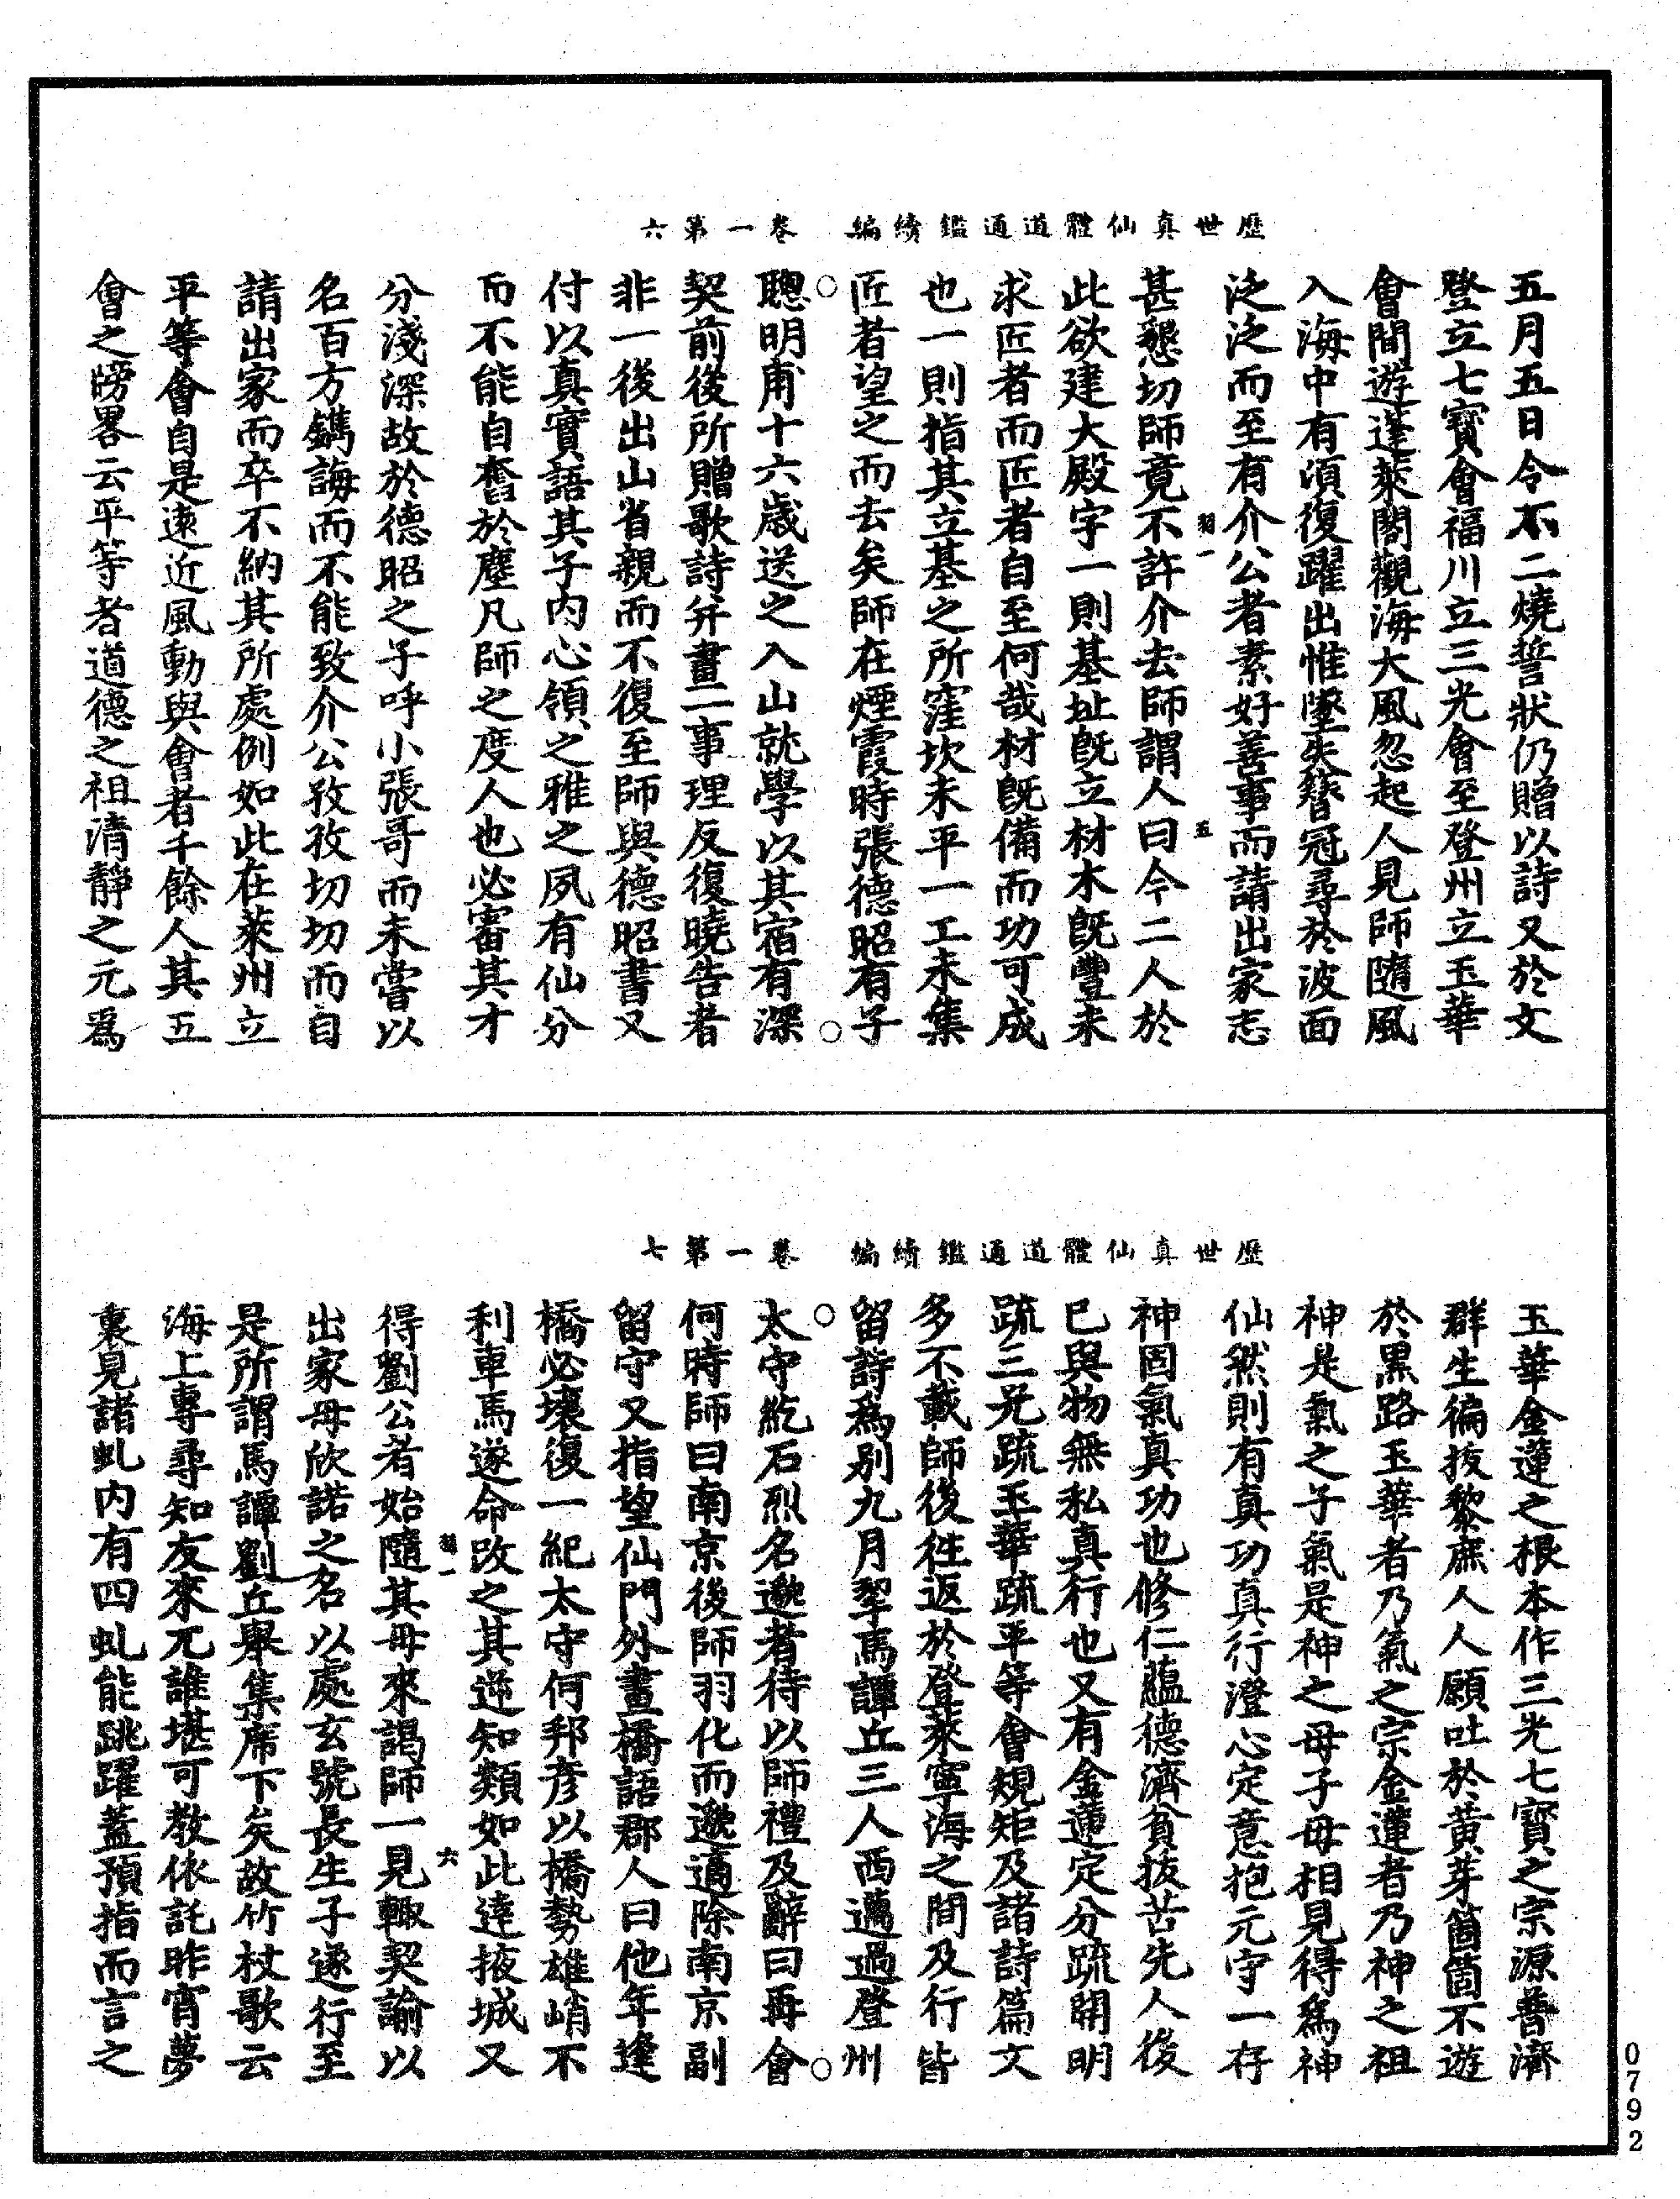 歷世真仙體道通鑑續編　卷一第六
五月五日令不二燒誓狀仍贈以詩又於文
登立七寶會福川立三光會至登州立玉華
會間遊蓬萊閣觀海大風忽起人見師隨風
入海中有頃復躍出惟墜失簪冠尋於波面
泛泛而至有介公者素好善事而請出家志
羽一
五
甚懇切師竟不許介去師謂人曰今二人於
此欲建大殿宇一則基址旣立材木旣豐未
求匠者而匠者自至何哉材旣備而功可成
也一則指其立基之所窪坎未平一工未集
匠者望之而去矣師在煙霞時張德昭有子
聰明甫十六歲送之入山就學以其宿有深
契前後所贈歌詩并畫二事理反復曉告者
非一後出山省親而不復至師與德昭書又
付以真實語其子內心領之雅之夙有仙分
而不能自奮於塵凡師之度人也必審其才
分淺深故於德昭之子呼小張哥而未嘗以
名百方鐫誨而不能致介公孜孜切切而自
請出家而卒不納其所處例如此在萊州立
平等會自是遠近風動與會者千餘人其五
會之牓畧云平等者道德之祖清靜之元爲
歷世真仙體道通鑑續編　卷一第七
玉華金蓮之根本作三光七寶之宗源普濟
群生徧拔黎庶人人願吐於黃芽箇箇不遊
於黑路玉華者乃氣之宗金蓮者乃神之祖
神是氣之子氣是神之母子母相見得爲神
仙然則有真功真行澄心定意抱元守一存
神固氣真功也修仁蘊德濟貧拔苦先人後
已與物無私真行也又有金蓮定分疏開明
疏三光疏玉華疏平等會規矩及諸詩篇文
多不載師後徃返於登萊寧海之間及行皆
留詩爲别九月挈馬譚丘三人西邁過登州
太守紇石烈名邈者待以師禮及辭曰再會
何時師曰南京後師羽化而邈適除南京副
留守又指望仙門外畫橋語郡人曰他年逢
橋必壞復一紀太守何邦彥以橋勢雄峭不
利車馬遂命改之其逆知類如此逹掖城又
羽一
六
得劉公者始隨其母來謁師一見輙契諭以
出家母欣諾之名以處玄號長生子遂行至
是所謂馬譚劉丘舉集席下矣故竹杖歌云
海上專尋知友來兀誰堪可教依託昨宵夢
裏見諸虬內有四虬能跳躍蓋預指而言之
0792